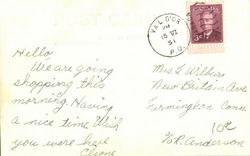 VAL D'OR
PM
15 VI
51
P.Q.
Hello,
We are going
shopping this
morning. Having
a nice time. Wish
you were here
Cleone
Mrs. G. Wilbur
New Britain Ave
Farmington Conn
Anderson